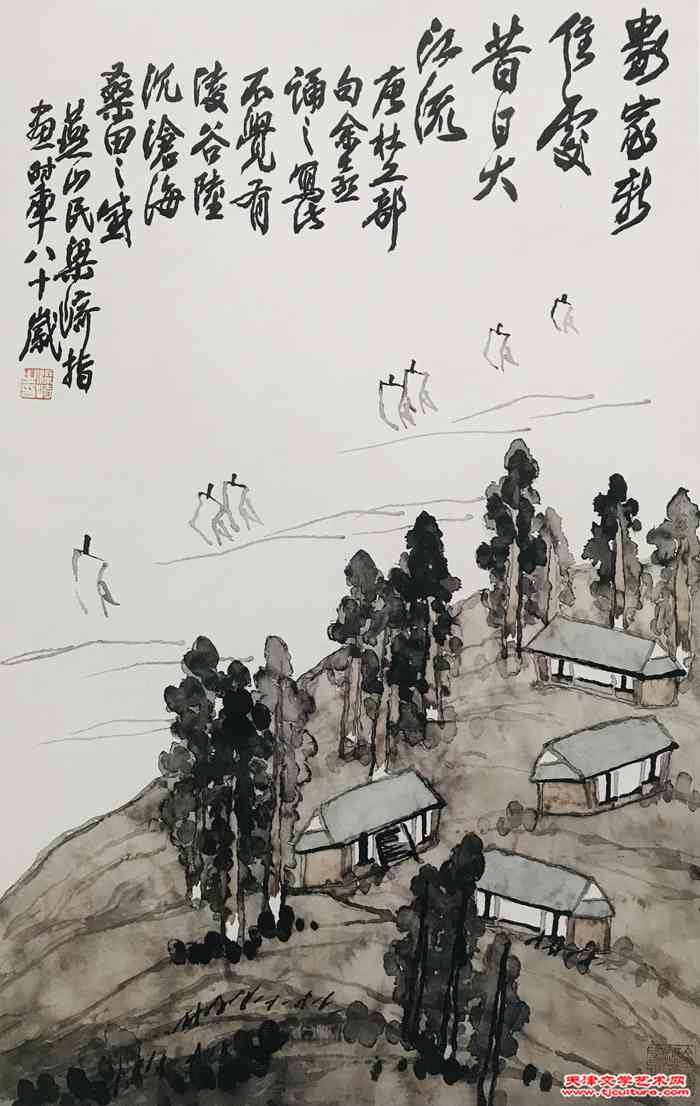 數家新
住處
昔日大
江流
唐杜工部
句余亟
誦之寫此
不覺有
陵谷陸
沉滄海
桑田之感
燕山民梁崎指
畫時年八十歲
天津文学艺术网
www.tjculture.com